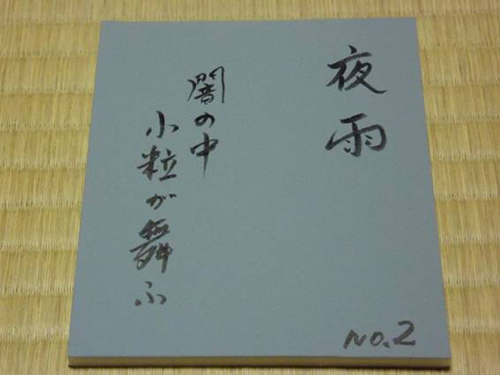 夜雨
闇の中
小粒が舞ふ
NO.2